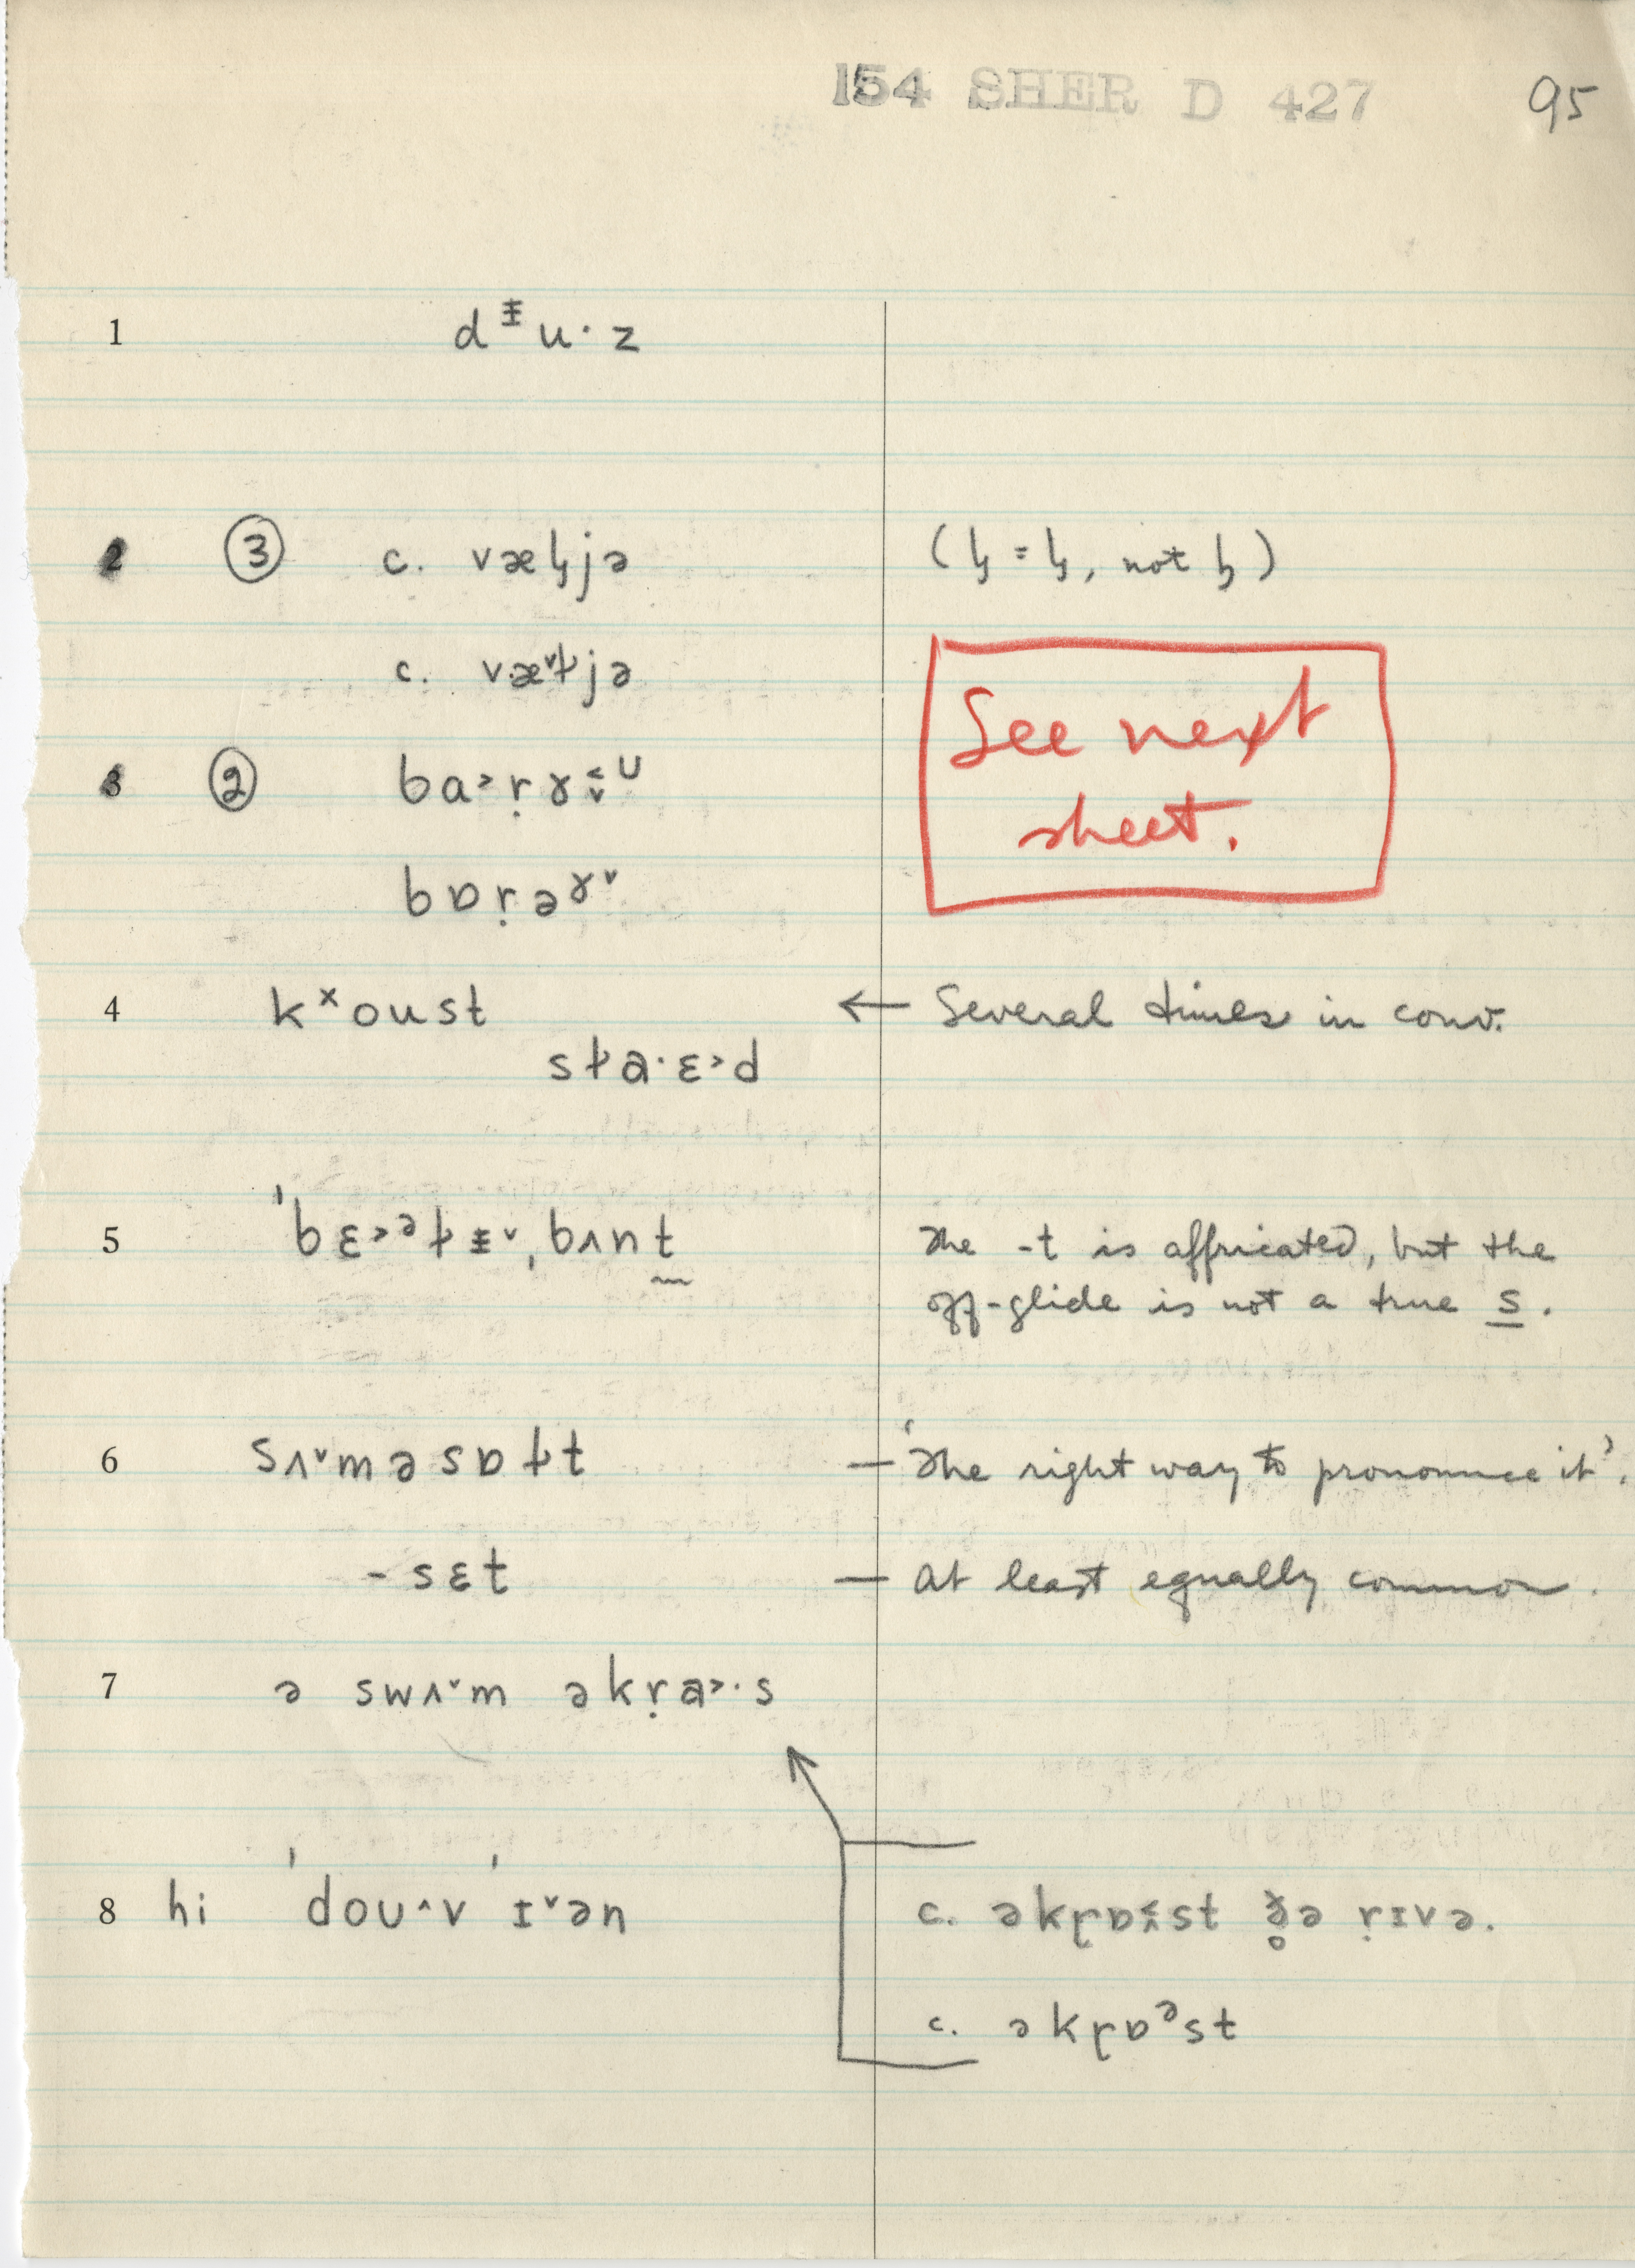 154 SHER D 427 95
1 dᵻu·z
2 ③ c. væɫ̡jə (ɫ̡ = ɫ̡, not ɧ)
c. væ˅ɫjə
See next
sheet.
3 ② ba˃ṛɤ
bɒṛəɤ˅
4 kˣoust ← Several times in conv.
sɫa·ɛ˃d
5 ˈbɛ˃ᵊɫᵻ˅ˌbʌnt The -t is affricated, but the
off-glide is not a true s.
6 sʌ˅məsɒɫt — 'The right way to pronounce it'.
-sɛt — At least equally common.
7 ə swʌ˅m əkṛa˃·s
8 hi ˈdou^v ˈɪ˅ən c. əkɽɒst ð̥ə ṛɪvə.
c. əkɽɒᵊst